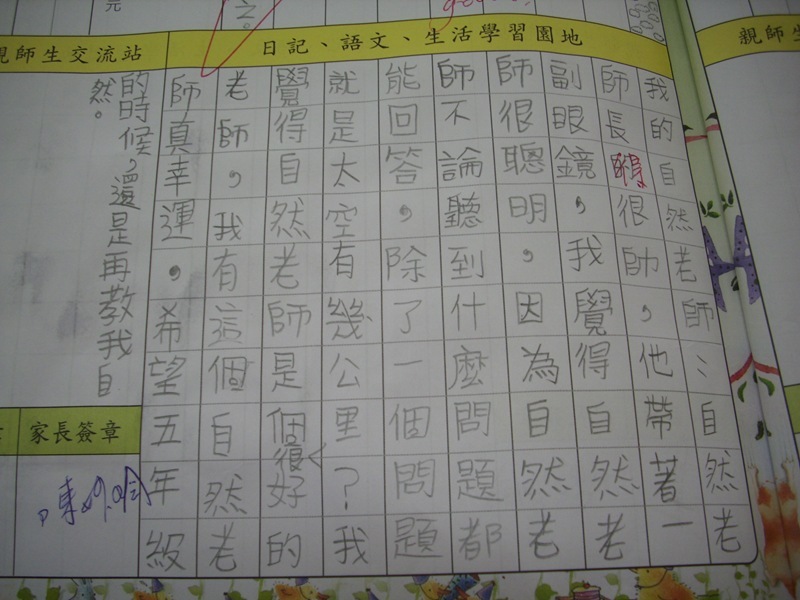 元
親師生交流站
日記、語文、生活學習園地
親師生
我的自然老師：自然老
師長得很帥，他帶著一
副眼鏡，我覺得自然老
師很聰明，因為自然老
師不論聽到什麼問題都
能回答，除了一個問題
就是太空有幾公里？我
覺得自然老師是個很好的
老師，我有這個自然老
師真幸運，希望五年級
的時候，還是再教我自
然。
家長簽章